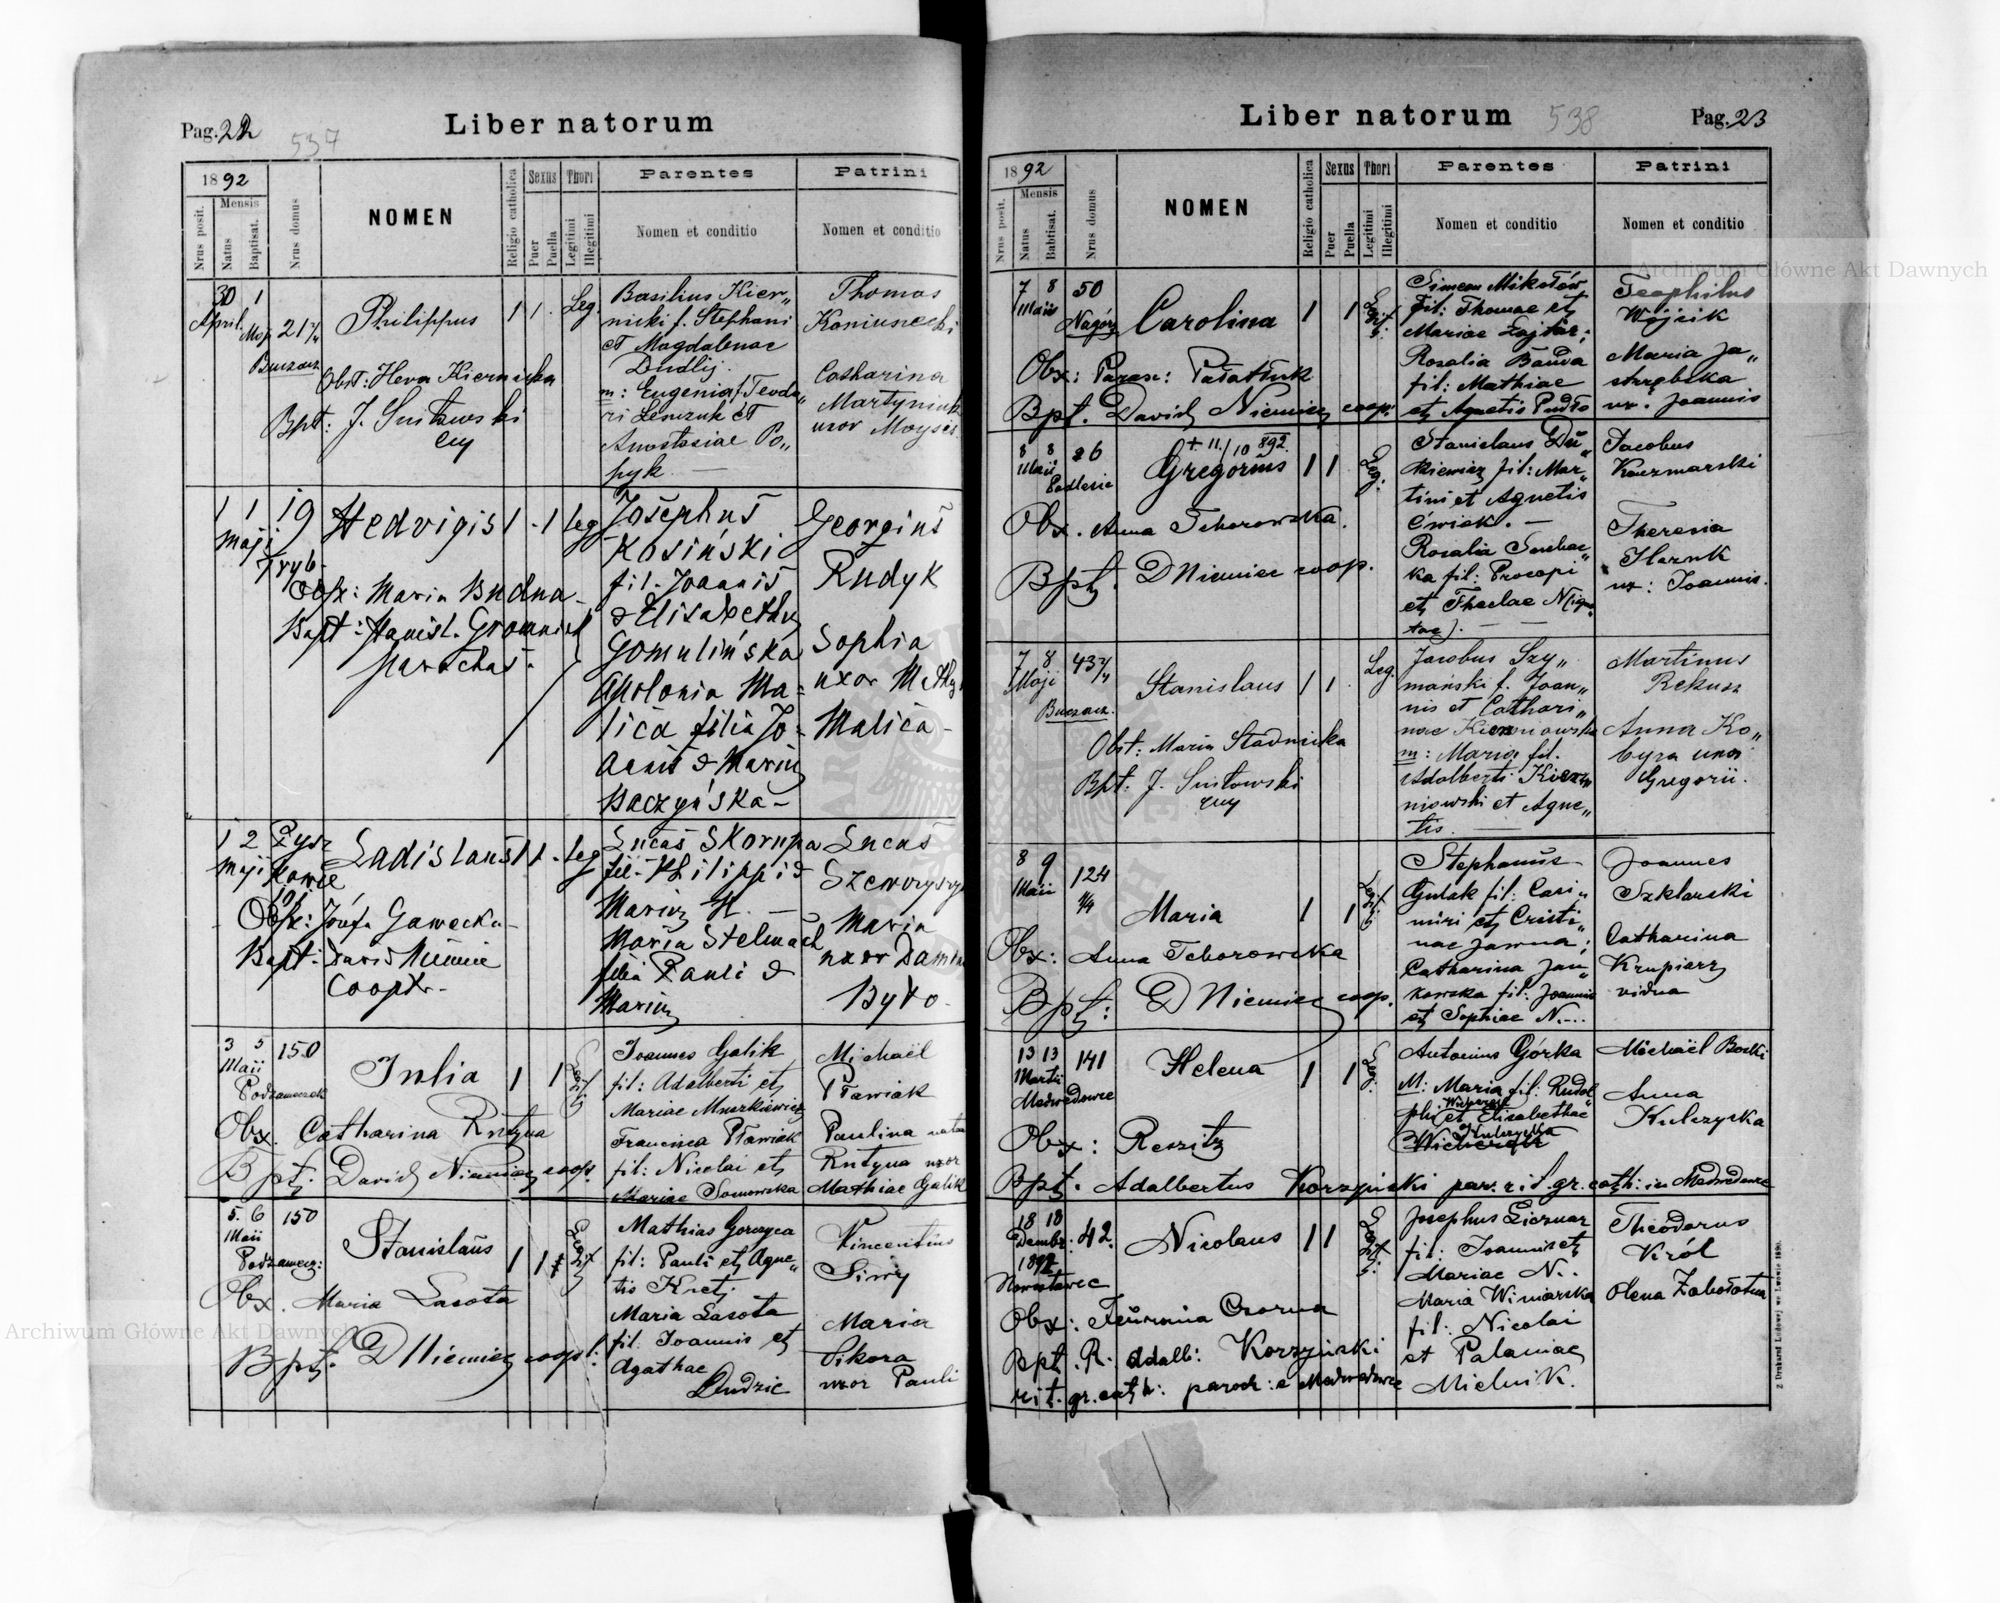 Pag. 22
537
Liber natorum
1892
Mensis
Nrus posit.
Natus
Baptisat.
Nrus domus
NOMEN
Religio catholica
Sexus
Puer
Puella
Thori
Legitimi
Illegitimi
Parentes
Nomen et conditio
Patrini
Nomen et conditio
30 1
April. Maji
21 4/4
Buczacz
Philippus
1 1 Leg.
Obst: Heva Kiernicka
Bpt: J. Suitowski
Basilius Kier„
nicki f. Stephani
et Magdalenae
Dudlij.
m: Eugenia f. Teodo„
ri Lewczuk et
Anastasiae Po„
pyk. —
Thomas
Koniuszecki
Catharina
Martyniuk
uxor Moysis
1 1
maji
19
Tryb.
Hedvigis 1 - 1 leg
Obst: Maria Budna
Bapt: Stanisl. Gromnicki
parochus.
Josephus
Kosiński
fil. Joannis
& Elisabethy
Gomulińska
Apolonia Ma-
lica filia Jo-
annis & Mariy
Baczyńska -
Georgius
Rudyk
Sophia
uxor Mathy
Malica -
1 2
maji
Zysz
kowce
101
Ladislaus 1 1 - leg
Obst: Józefa Gawecka -
Bapt: David Niemiec
Cooptr -
Lucas Skorupa
fil - Philippi &
Mariy N. —
Maria Stelmach
filia Pauli &
Mariy
Lucas
Maria
uxor Dam
Byko -
3 5
Maii
150
Podzameczek
Julia 1 1 Legit
Obx. Catharina Rutyna
Bpt. David Niemiec coop.
Joannes Galik
fil: Adalberti et
Mariae Muszkiewicz
Francisca Pławiak
fil: Nicolai et
Mariae Sosnowska
Michaël
Pławiak
Paulina nata
Rutyna uxor
Mathiae Galik
5. 6
Maii
150
Podzamecz:
Stanislaus 1 1 Legit
Obx. Maria Lasota
Bpt. D Niemiec coop:
Mathias Gorzyca
fil: Pauli et Agne„
tis Kret;
Maria Lasota
fil: Joannis et
Agathae
Dudzic
Vincentius
Siwy
Maria
Sikora
uxor Pauli
Liber natorum
538
Pag. 23
1892
Mensis
Nrus posit.
Natus
Babtisat.
Nrus domus
NOMEN
Religio catholica
Sexus
Puer
Puella
Thori
Legitimi
Illegitimi
Parentes
Nomen et conditio
Patrini
Nomen et conditio
7 8
Maii
50
Nagórz
Carolina 1 1 Legit.
Obx: Parasc: Pałatiuk
Bpt. David Niemiec coop:
Simeon Mikołów
fil: Thomae et
Mariae Zajfar;
Rosalia Banda
fil: Mathiae
et Agnetis Pudło
Teophilus
Wójcik
Maria Ja„
strzębska
ux. Joannis
8 8.
Maii
26
Podlesie
+ 11/10 892.
Gregorius 1 1 Leg.
Obx. Anna Teborowska.
Bpt. D Niemiec coop.
Stanislaus Du„
kiewicz fil: Mar„
tini et Agnetis
Ćwiek. —
Rosalia
ka fil: Procopi
et Theclae N(igno„
tae). — —
Jacobus
Kaczmarski
Theresia
Harnk
ux: Joannis.
7 8
Maji
43 4/4
Buczacz.
Stanislaus 1 1 Leg.
Obst: Maria Stadnicka
Bpt: J. Suitowski
Jacobus Szy„
mański f. Joan„
nis et Cathari„
nae Kiersnowska
m: Maria fil.
Adalberti Kiers„
niowski et Agne„
tis. —
Martinus
Rekucz
Anna Ko„
byra uxor
Gregorii.
8 9
Maii
124
4/4
Maria 1 1 Legit
Obx: Anna Teborowska
Bpt: D Niemiec coop.
Stephanus
Gulak fil: Casi„
miri et Cristi„
nae Jawna;
Catharina Jan„
kowska fil: Joannis
et Sophiae N.-..
Joannes
Szklarski
Catharina
Krupiarz
vidua
13 13
Martii
Medwedowce
141
Helena 1 1 Leg:
Obx: Reszitz
Bpt. Adalbertus Korzyński par. rit. gr. cath: in Medwedowce
Antonius Górka
M: Maria fil: Rudol„
phi Wicherek et Elisabethae
Kulczycka
Wicherek
Michaël Boski
Anna
Kulczycka
18 18
Dembr.
1892
42.
Nowostawce
Nicolaus 1 1 Legit.
Obx: Feuronia Czorna
Bpt. R. Adalb: Korzyński
rit. gr. cath: paroch: e Medwedowce
Josephus Liczner
fil: Joannis et
Mariae N..
Maria Winiarska
fil: Nicolai
et Palaniae
Mielnik.
Theodorus
Król
Olena Zabołotna
Z Drukarni Ludowej we Lwowie 1890.
Archiwum Główne Akt Dawnych
Archiwum Główne Akt Dawnych